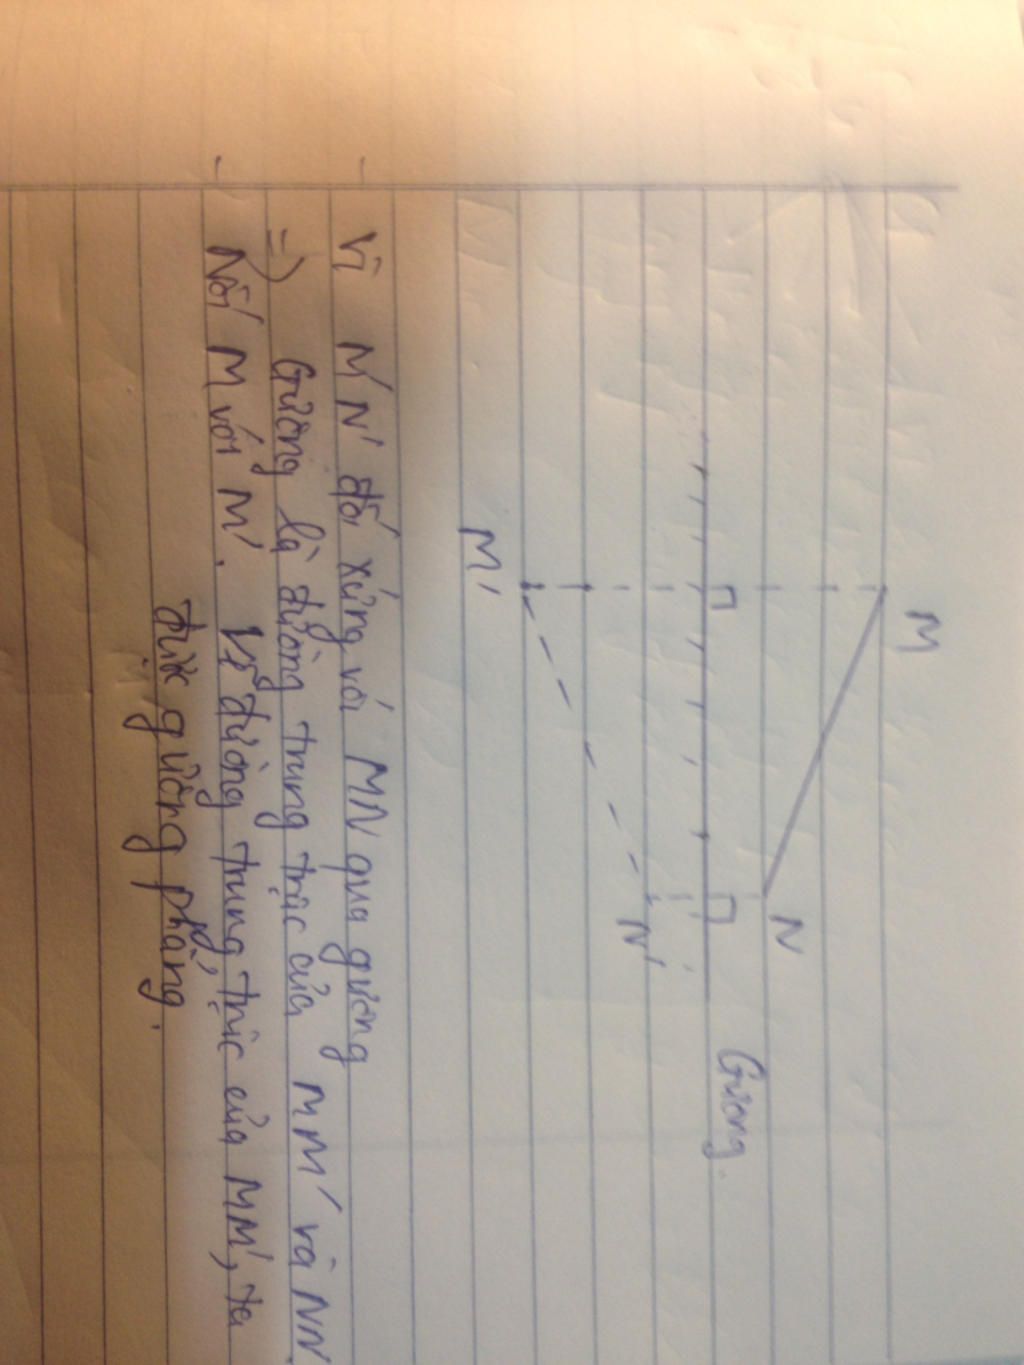 M
N
Gương
N'
M'
- Vì M'N' đối xứng với MN qua gương
=> Gương là đường trung trực của MM' và NN'
- Nối M với M'. Vẽ đường trung trực của MM', ta
được gường phẳng.